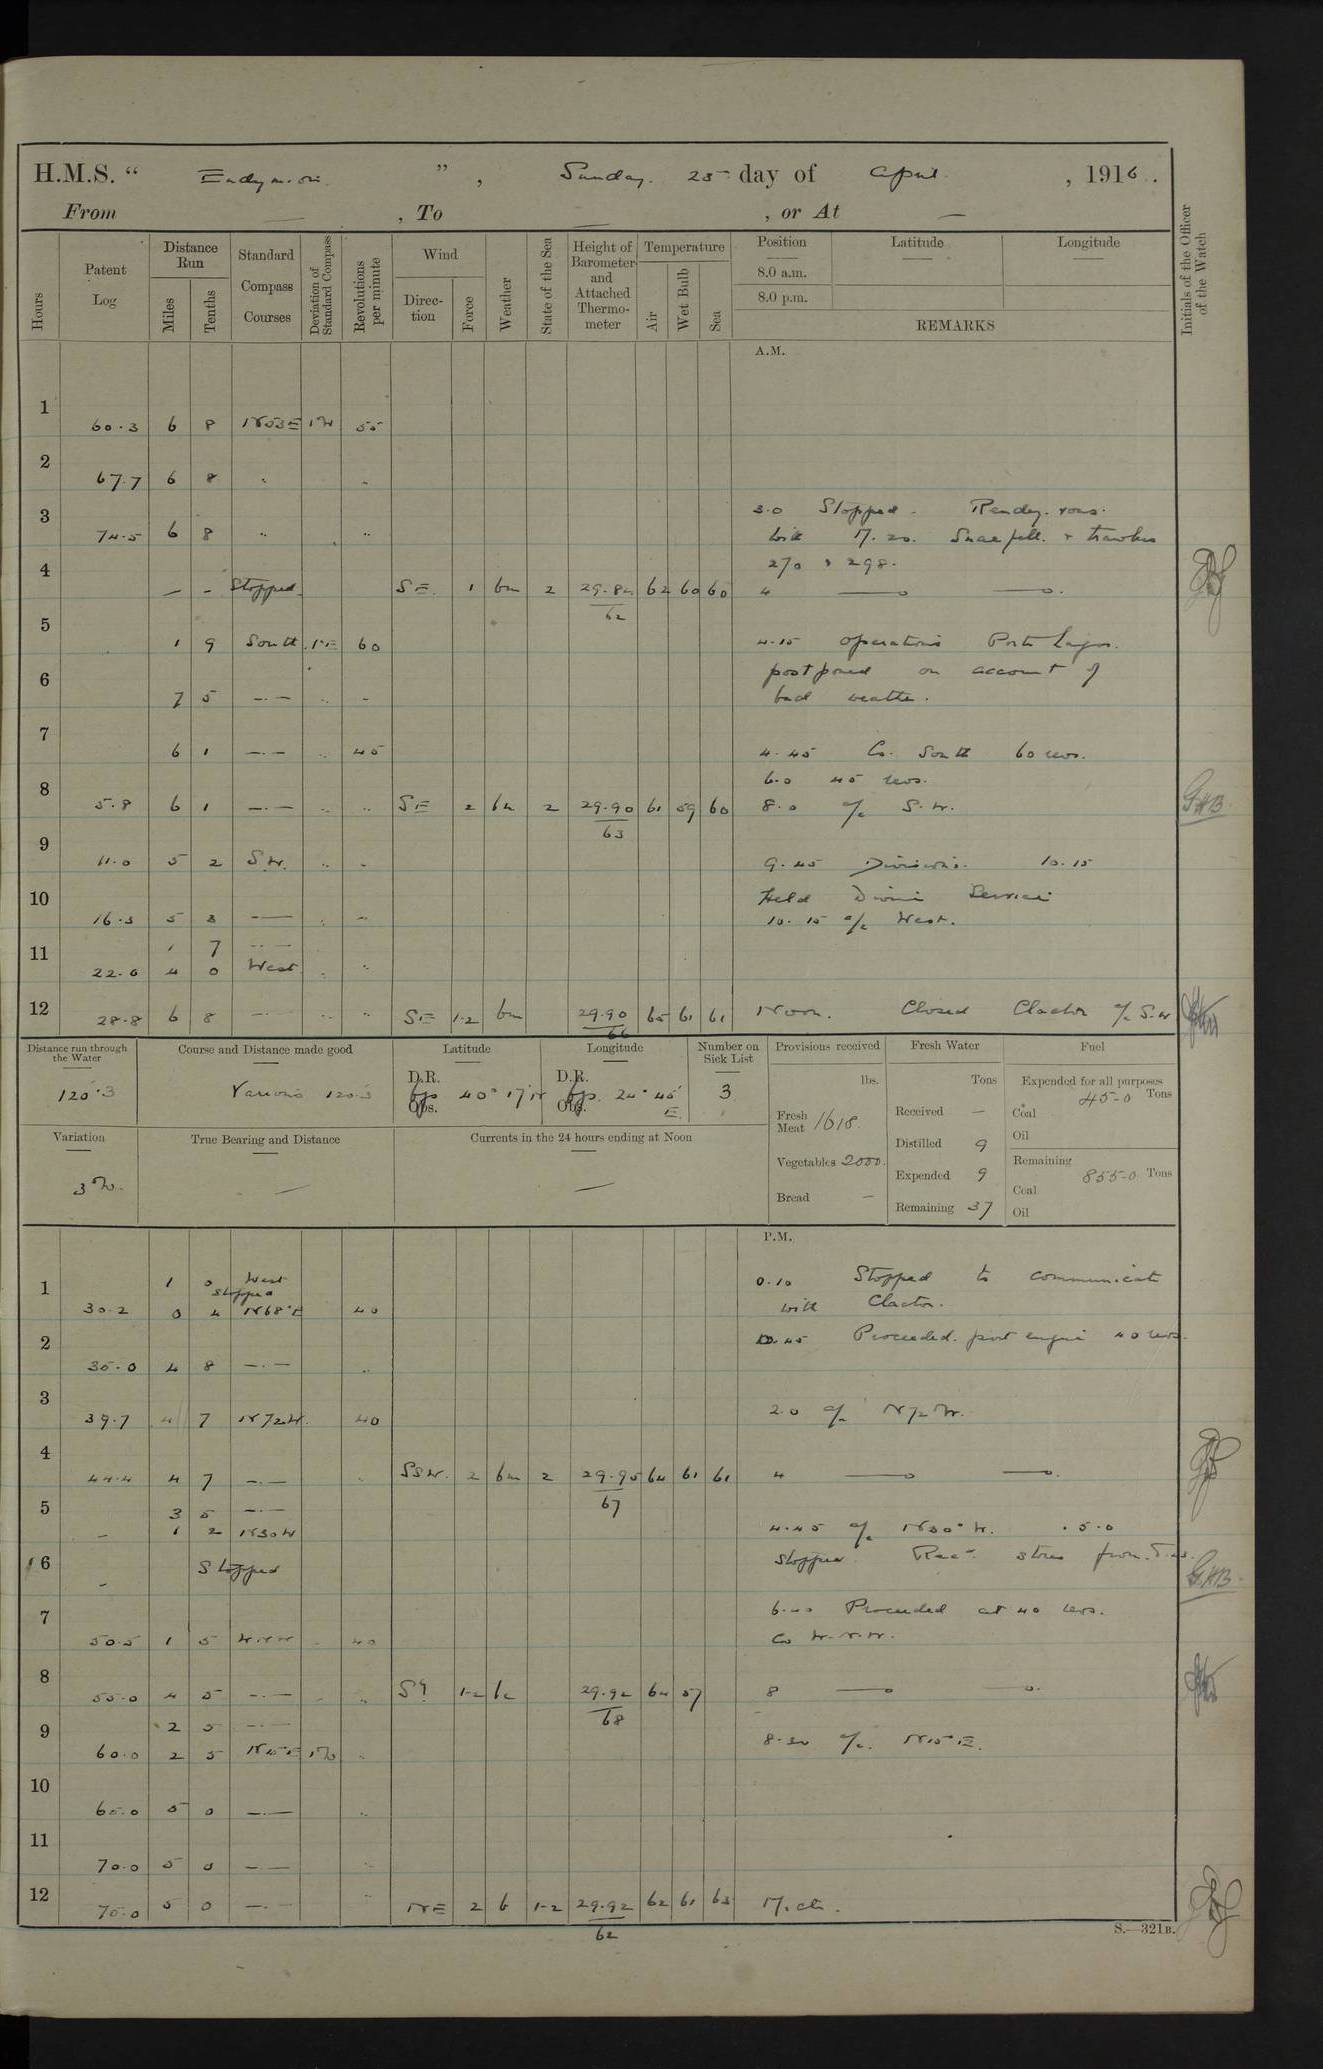 H.M.S. " Endymion ", Sunday. 23 day of April, 1916.
From — , To — , or At —
Hours
Patent Log
Distance Run
Miles
Tenths
Standard Compass Courses
Deviation of Standard Compass
Revolutions per minute
Wind
Direction
Force
Weather
State of the Sea
Height of Barometer and Attached Thermometer
Temperature
Air
Wet Bulb
Sea
Position
8.0 a.m.
8.0 p.m.
Latitude
Longitude
REMARKS
Initials of the Officer of the Watch
A.M.
1 60.3 6 8 N53E 1W 55
2 67.7 6 8 " "
3 74.5 6 8 " "
3.0 Stopped. Rendez-vous.
with M.20. Snaefell. & trawlers
270 & 298.
4 — - Stopped. SE. 1 bm 2 62 60 60 4
62
5 1 9 South 1E 60
4.15 operations Porto Lagos.
postponed on account of
bad weather.
6 7 5 —.— " "
7 6 1 —.— " 45
4.45 Co. South 60 revs.
6.0 45 revs.
8 5.8 6 1 —.— " " SE 2 bm 2 29.90 61 59 60 8.0 a/c S.W.
63
GHB
9 11.0 5 2 SW. " "
9.45 Divisions. 10.15
Held Divine Service
10 16.3 5 3 —— " "
10.15 a/c West.
11 1 7 —.—
22.0 4 0 West " "
12 28.8 6 8 —.— " " SE 1.2 bm 29.90 65 61 61 Noon. Closed Clacton a/c S.W
66
Distance run through the Water
120.3
Course and Distance made good
Various 120.3
Latitude
D.R.
Obs.
Longitude
D.R.
Obs.
24° 45' E.
Number on Sick List
3
Provisions received
lbs.
Fresh Meat 1618.
Vegetables 2000.
Bread —
Fresh Water
Tons
Received —
Distilled 9
Expended 9
Remaining 37
Fuel
Expended for all purposes
45-0 Tons
Coal
Oil
Remaining
855-0 Tons
Coal
Oil
Variation
3W.
True Bearing and Distance
—
Currents in the 24 hours ending at Noon
—
P.M.
1 1 0 West
stopped
30.2 0 4 N68°E 40
0.10 Stopped to communicate
with Clacton.
0.45 Proceeded. port engine 40 revs.
2 35.0 4 8 —.— "
3 39.7 4 7 N72W. 40
2.0 a/c N72W.
4 44.4 4 7 —.— " SSW. 2 bm 2 29.95 64 61 61 4
67
5 3 5 —.—
— 1 2 N30W
4.45 a/c N30°W. 5.0
6 — Stopped
stopped. Recd. stores from
GHB
7 50.5 1 5 WNW 40
6.40 Proceeded at 40 revs.
Co W.N.W.
8 55.0 4 5 —.— " 1-2 bc 29.92 64 57 8
68
9 2 5 —.—
60.0 2 5 N15E 1W "
8.30 a/c. N15E.
10 65.0 5 0 —.— "
11 70.0 5 0 —.— "
12 75.0 5 0 —.— " NE 2 b 1-2 29.92 62 61 63 M.dt.
62
S.—321B.